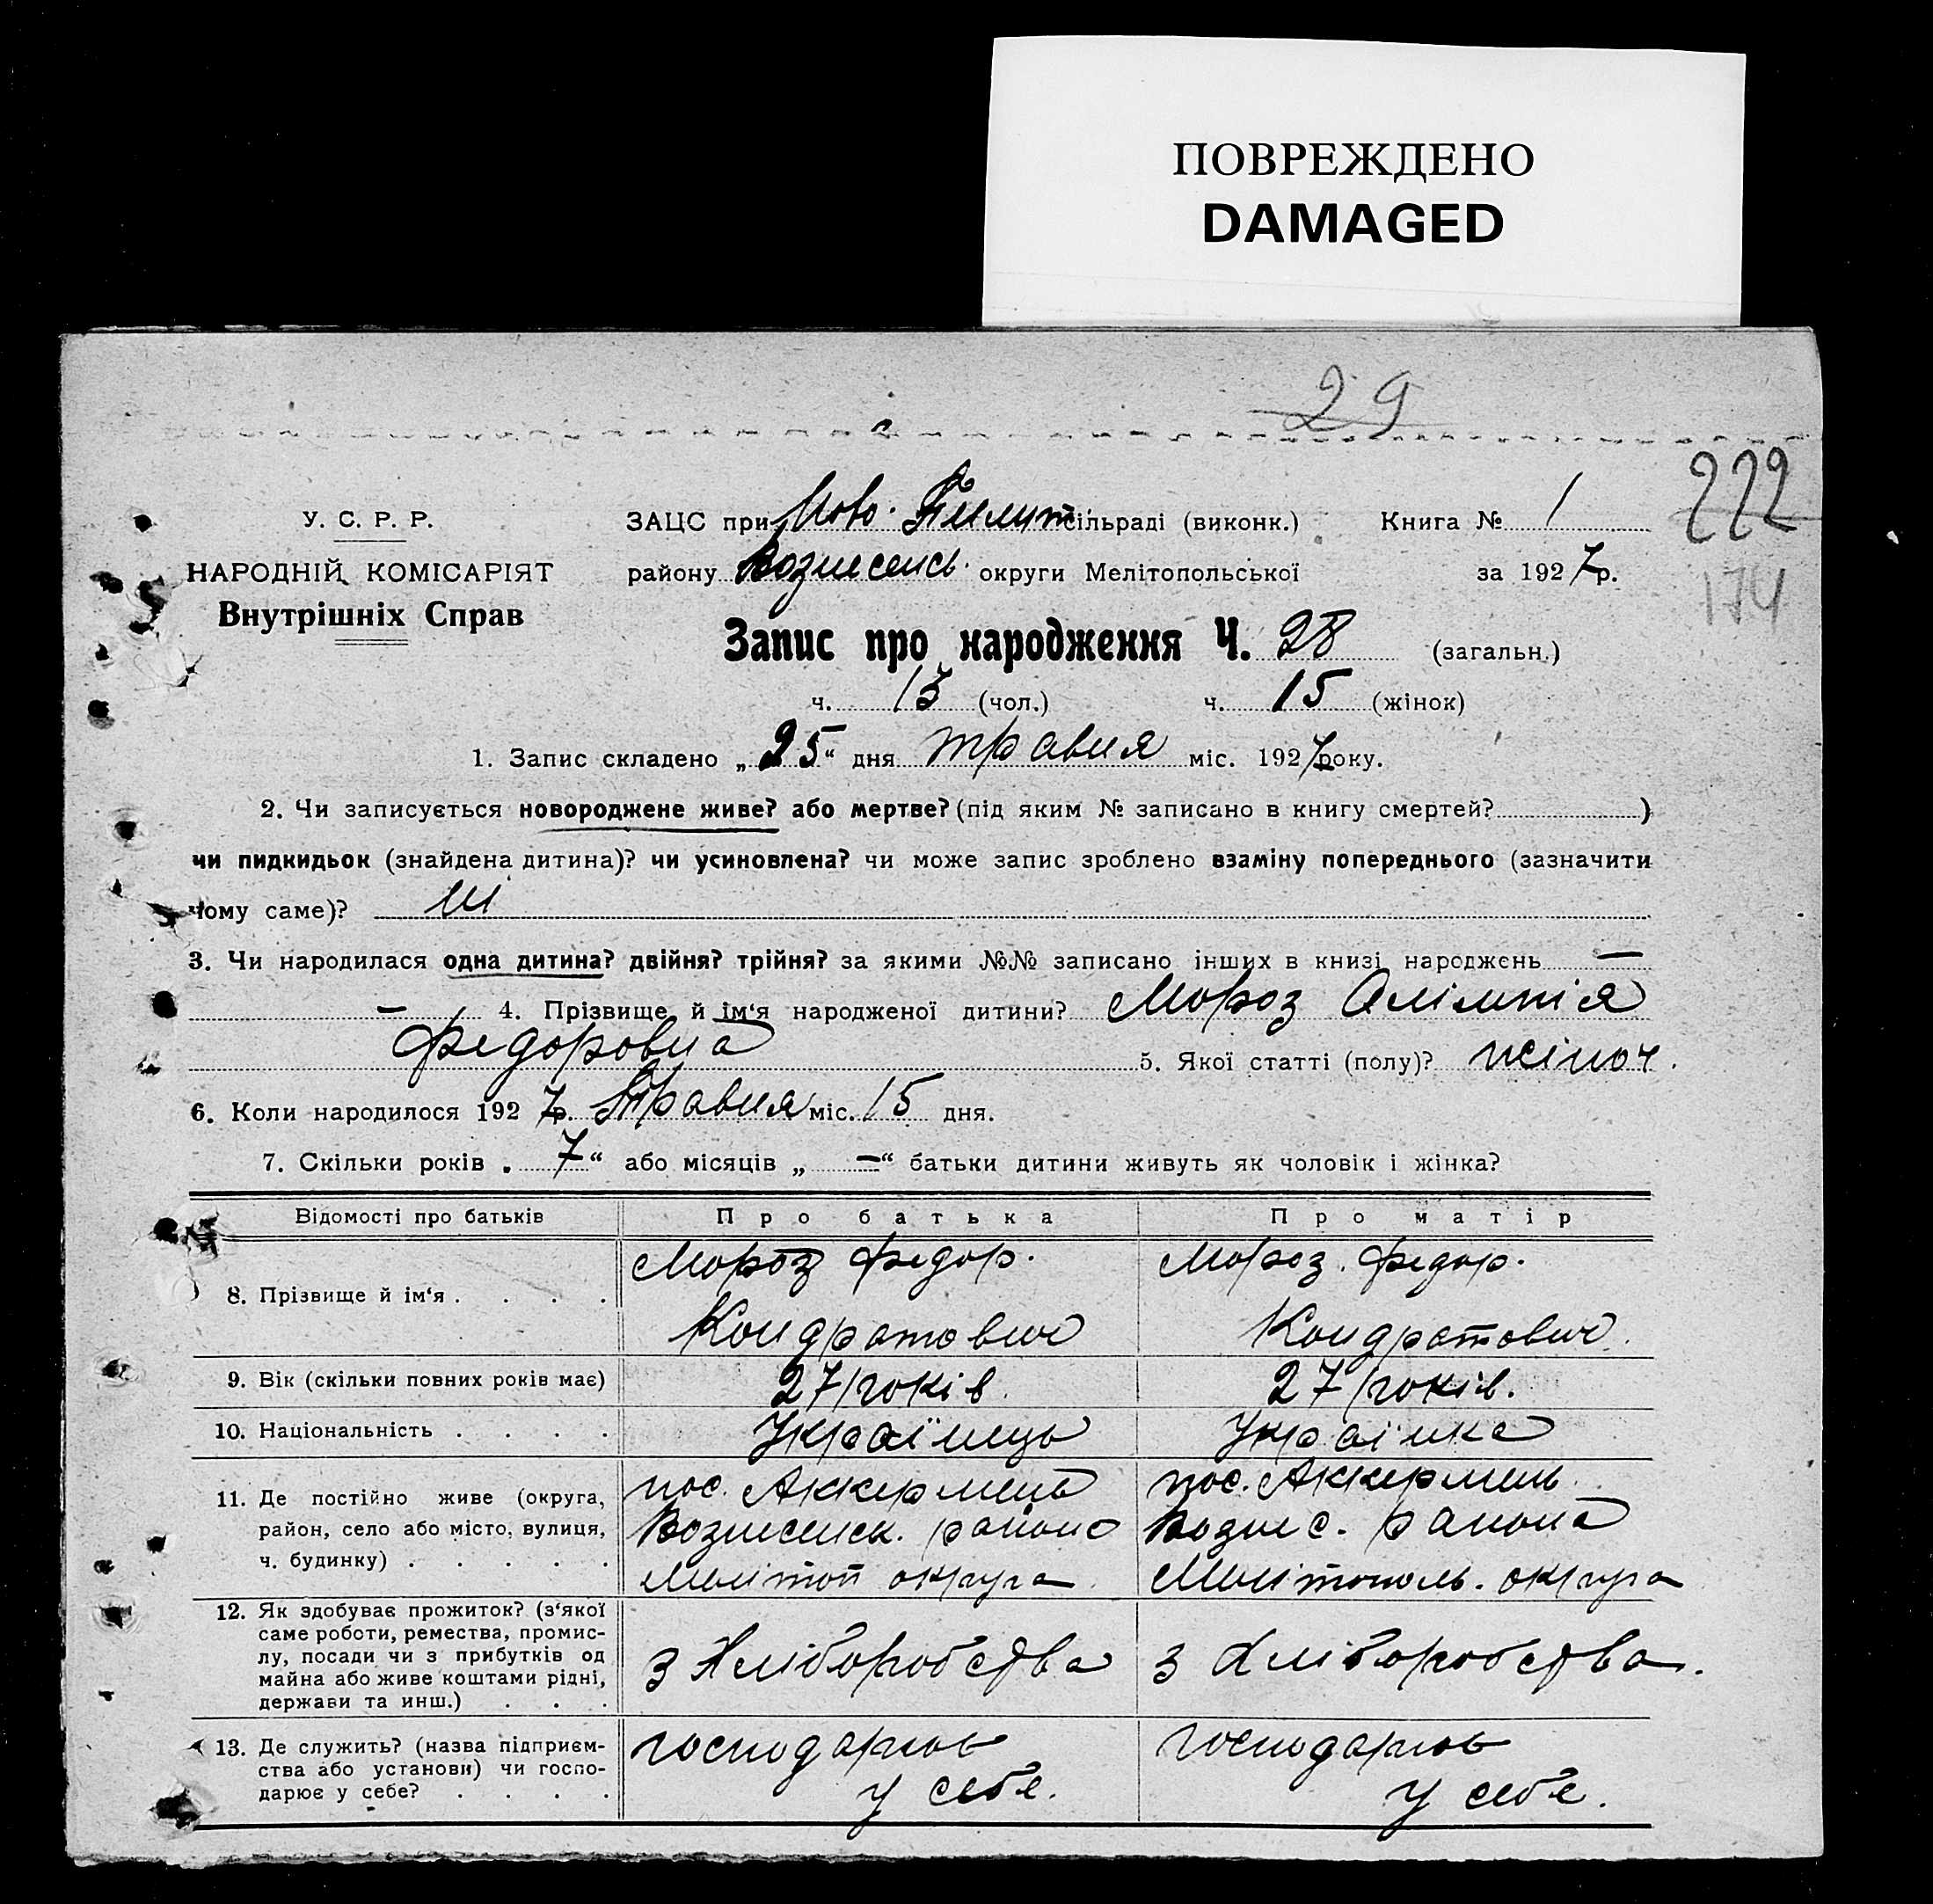 ПОВРЕЖДЕНО
DAMAGED
29
222
174
У. С. Р. Р.
НАРОДНІЙ КОМІСАРІЯТ
Внутрішніх Справ
ЗАЦС при Ново. сільраді (виконк.) Книга № 1
району Вознесенсь. округи Мелітопольської за 1927 р.
Запис про народження Ч. 28 (загальн.)
ч. 13 (чол.) ч. 15 (жінок)
1. Запис складено „25“ дня травня міс. 1927 року.
2. Чи записується новороджене живе? або мертве? (під яким № записано в книгу смертей? )
чи пидкидьок (знайдена дитина)? чи усиновлена? чи може запис зроблено взаміну попереднього (зазначити
чому саме)? ні
3. Чи народилася одна дитина? двійня? трійня? за якими №№ записано інших в книзі народжень —
— 4. Прізвище й ім‘я народженої дитини? Мороз Олімпія
Федоровна 5. Якої статті (полу)? жіноч.
6. Коли народилося 1927 р. Травня міс. 15 дня.
7. Скільки років „ 7 “ або місяців „ — “ батьки дитини живуть як чоловік і жінка?
Відомості про батьків Про батька Про матір
8. Прізвище й ім‘я . . . . Мороз Федор. Кондратович Мороз. Федор. Кондратович.
9. Вік (скільки повних років має) 27 років. 27 років.
10. Національність . . . . Українець Українка
11. Де постійно живе (округа, район, село або місто, вулиця, ч. будинку) . . . . . пос. Аккермень Вознесенск. района Мелітоп округа пос. Аккермень Вознес. района Мелітополь. округа
12. Як здобуває прожиток? (з‘якої саме роботи, ремества, промис-
лу, посади чи з прибутків од майна або живе коштами рідні, держави та инш.) . . . з Хліборобства з Хліборобства.
13. Де служить? (назва підприєм-
ства або установи) чи госпо-
дарює у себе? . . . . господарює у себе. господарює у себе.